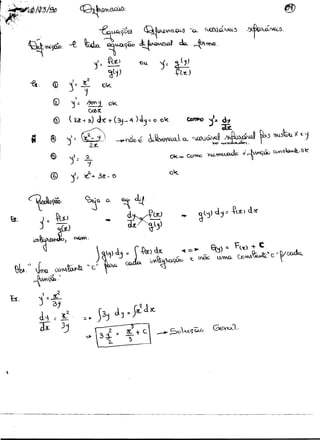 Equações Diferenciais a variáveis separáveis.
Definição - É toda equação diferencial da forma
y' = f(x)/g(y) ou y' = g(y)/f(x)
Ex. ① y' = x²/y ok
② y' = seny/cosx ok
③ (2x+3)dx + (3y-4)dy = 0 ok como y' = dy/dx
④ y' = (x² - y)/2x → não é diferencial a variável separável pois mistura x e y
⑤ y' = 2/y ok → como numerador é função constante ok
⑥ y' = x² + 3x - 0 ok
Solução Seja a eq dif
Ex. y' = f(x)/g(y) → dy/dx = f(x)/g(y) → g(y) dy = f(x) dx
integrando, vem:
∫g(y) dy = ∫f(x) dx <=> G(y) = F(x) + C
Obs. "Uma constante "c" para cada integração e não uma constante "c" p/ cada função."
Ex. y' = x²/3y
dy/dx = x²/3y => ∫3y dy = ∫x² dx
→ 3y²/2 = x³/3 + C → Solução Geral.